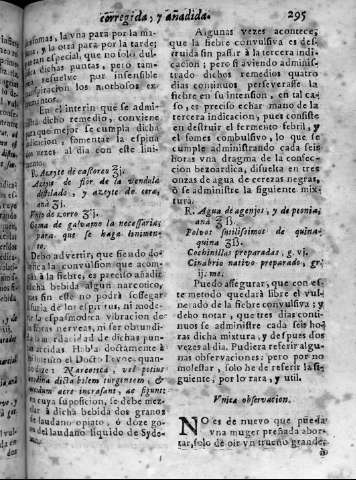 corregida, y añadida. 295
sintomas, la vna para por la ma-
y la otra para por la tarde;
tan especial, que no solo dul-
dichas puntas; pero tam-
resuelve por insensible
los morbosos ex-
el interin que se admi-
dicho remedio, conviene
que mejor se cumpla dicha
fomentar la espina
vezes al dia con este lini-
R. Azeyte de castoreo ʒj.
Azeyte de flor de la
y azeyte de cera,
ana ʒj.
de zorro ʒj.
Goma de galvano la necessaria;
para que se haga linimen-
to.
Debo advertir, que siendo
la convulsion que acom-
à la fiebre, es preciso añadir
dicha bebida algun narcotico,
sin este no podrà sossegar
furia de los espiritus, ni mode-
la espasmodica vibracion de
fibras nerveas, ni ser obtundi-
la mordacidad de dichas pun-
acidas. Habla doctamente à
intento el Docto
Narcotica, vel potius
dicta bilem turgentem, &
acre infrenant, ac figunt;
en cuya suposicion, se debe mez-
à dicha bebida dos granos
laudano opiato, ò doze go-
del laudano liquido de Syde-
Algunas vezes acontece,
que la fiebre convulsiva es des-
truida sin passar à la tercera indi-
cacion; pero si aviendo adminis-
trado dichos remedios quatro
dias continuos perseverasse la
fiebre en su intension, en tal ca-
so, es preciso echar mano de la
tercera indicacion, pues consiste
en destruir el fermento febril, y
el fomes convulsivo, lo que se
cumple administrando cada seis
horas vna dragma de la confec-
cion bezoardica, disuelta en tres
onzas de agua de cerezas negras,
ò se administre la siguiente mix-
tura.
R. Agua de agenjos, y de peonia,
ana ʒß.
Polvos sutilissimos de quina-
quina ʒß.
Cochinillas preparadas, g. vj.
Cinabrio nativo preparado, gr.
iij. me.
Puedo assegurar, que con es-
te methodo quedarà libre el vul-
nerado de la fiebre convulsiva; y
debo notar, que tres dias conti-
nuos se administre cada seis ho-
ras dicha mixtura, y despues dos
vezes al dia. Pudiera referir algu-
nas observaciones; pero por no
molestar, solo he de referir la si-
guiente; por lo rara, y util.
Vnica observacion.
NO es de nuevo que pueda
vna muger preñada abor-
tar, solo de oir vn trueno grande;